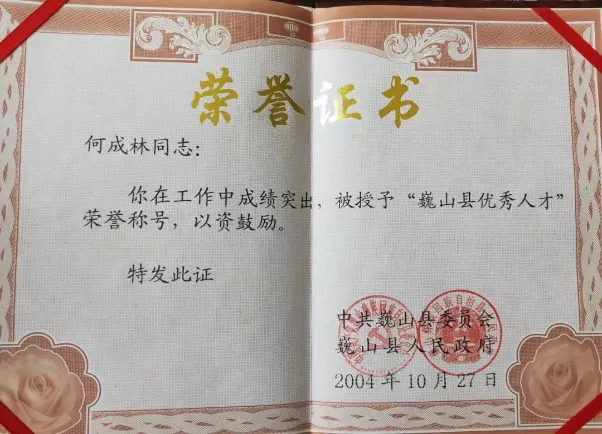 荣誉证书
何成林同志：
你在工作中成绩突出，被授予“巍山县优秀人才”
荣誉称号，以资鼓励。
特发此证
中共巍山县委员会
巍山县人民政府
2004年10月27日